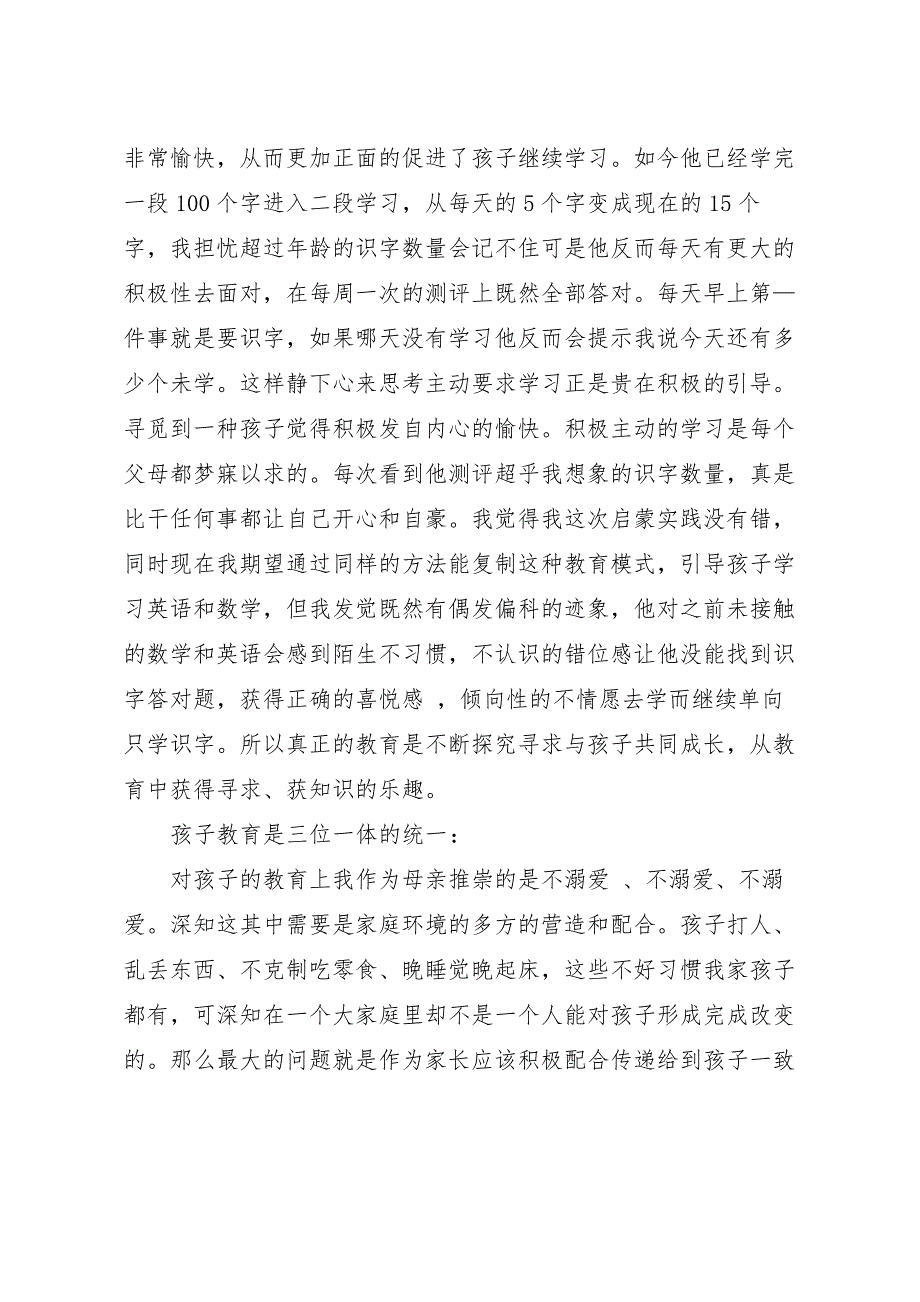 非常愉快，从而更加正面的促进了孩子继续学习。如今他已经学完
一段 100 个字进入二段学习，从每天的 5 个字变成现在的 15 个
字，我担忧超过年龄的识字数量会记不住可是他反而每天有更大的
积极性去面对，在每周一次的测评上既然全部答对。每天早上第一
件事就是要识字，如果哪天没有学习他反而会提示我说今天还有多
少个未学。这样静下心来思考主动要求学习正是贵在积极的引导。
寻觅到一种孩子觉得积极发自内心的愉快。积极主动的学习是每个
父母都梦寐以求的。每次看到他测评超乎我想象的识字数量，真是
比干任何事都让自己开心和自豪。我觉得我这次启蒙实践没有错，
同时现在我期望通过同样的方法能复制这种教育模式，引导孩子学
习英语和数学，但我发觉既然有偶发偏科的迹象，他对之前未接触
的数学和英语会感到陌生不习惯，不认识的错位感让他没能找到识
字答对题，获得正确的喜悦感 ，倾向性的不情愿去学而继续单向
只学识字。所以真正的教育是不断探究寻求与孩子共同成长，从教
育中获得寻求、获知识的乐趣。
孩子教育是三位一体的统一：
对孩子的教育上我作为母亲推崇的是不溺爱 、不溺爱、不溺
爱。深知这其中需要是家庭环境的多方的营造和配合。孩子打人、
乱丢东西、不克制吃零食、晚睡觉晚起床，这些不好习惯我家孩子
都有，可深知在一个大家庭里却不是一个人能对孩子形成完成改变
的。那么最大的问题就是作为家长应该积极配合传递给到孩子一致